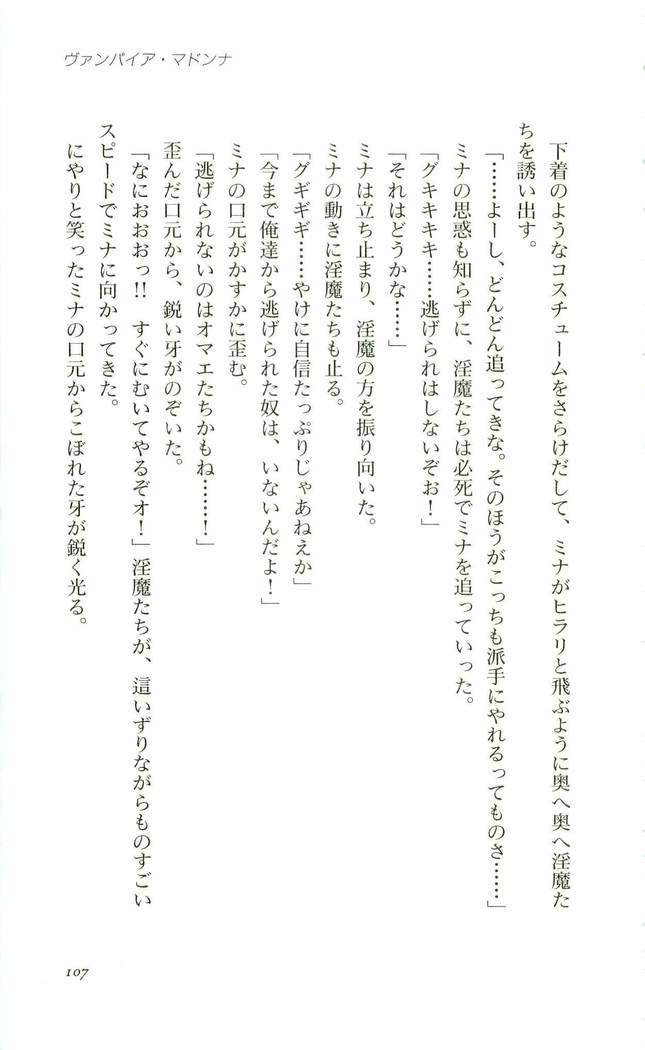 ヴァンパイア・マドンナ
下着のようなコスチュームをさらけだして、ミナがヒラリと飛ぶように奥へ奥へ淫魔た
ちを誘い出す。
「……よーし、どんどん追ってきな。そのほうがこっちも派手にやれるってものさ……」
ミナの思惑も知らずに、淫魔たちは必死でミナを追っていった。
「グキキキキ……逃げられはしないぞお！」
「それはどうかな……」
ミナは立ち止まり、淫魔の方を振り向いた。
ミナの動きに淫魔たちも止る。
「グギギギ……やけに自信たっぷりじゃあねえか」
「今まで俺達から逃げられた奴は、いないんだよ！」
ミナの口元がかすかに歪む。
「逃げられないのはオマエたちかもね……！」
歪んだ口元から、鋭い牙がのぞいた。
「なにおおおっ!!　すぐにむいてやるぞオ！」淫魔たちが、這いずりながらものすごい
スピードでミナに向かってきた。
にやりと笑ったミナの口元からこぼれた牙が鋭く光る。
107